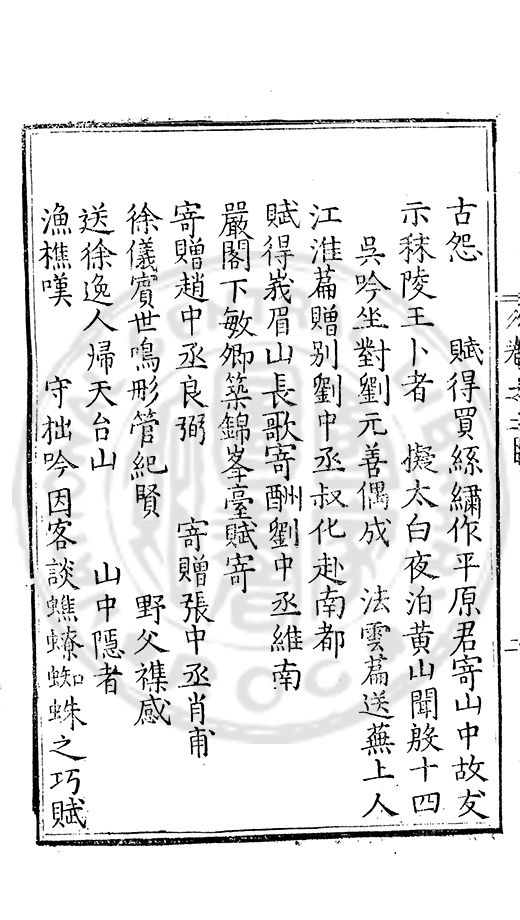 古怨　賦得買絲繡作平原君寄山中故友
示秣陵王卜者　擬太白夜泊黃山聞殷十四
吳吟坐對劉元善偶成　法雲篇送蕪上人
江淮篇贈別劉中丞叔化赴南都
賦得峩眉山長歌寄酬劉中丞維南
嚴閣下敏卿築錦峯臺賦寄
寄贈趙中丞良弼　寄贈張中丞肖甫
徐儀賓世鳴彤管紀賢　野父襍感
送徐逸人歸天台山　山中隱者
漁樵嘆　守拙吟因客談蟭蟟蜘蛛之巧賦